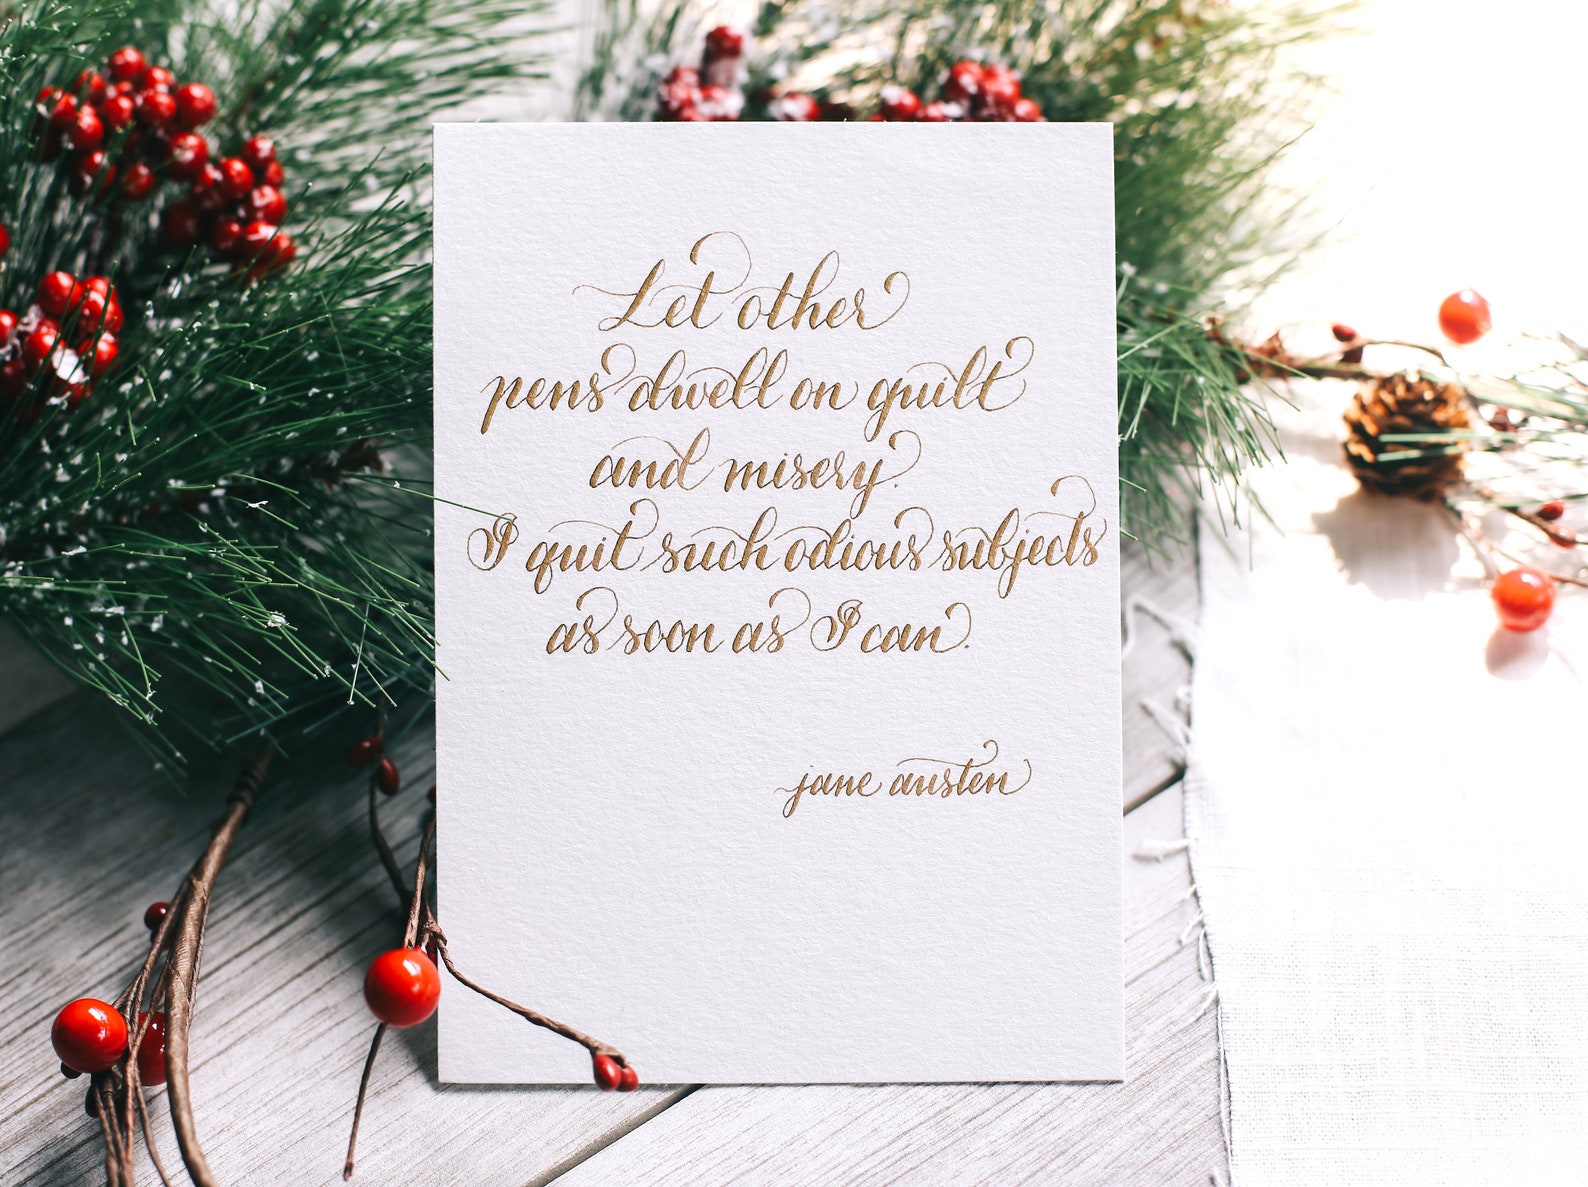 Let other
pens dwell on guilt
and misery.
I quit such odious subjects
as soon as I can.
jane austen